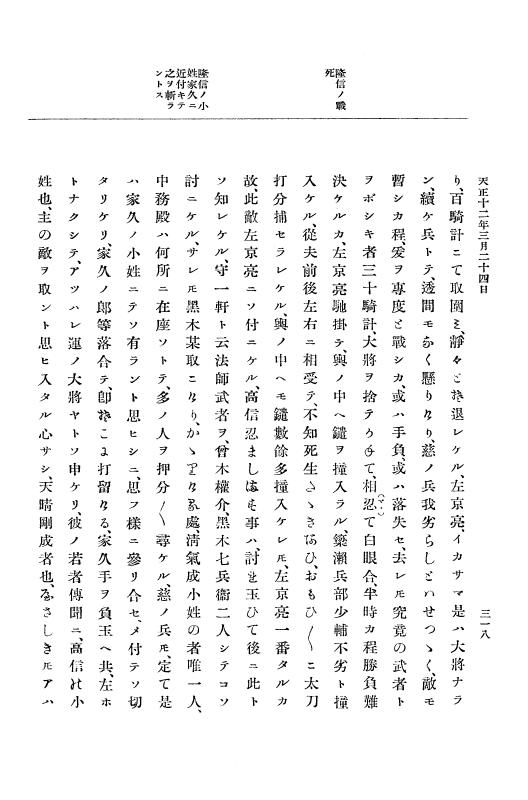 天正十二年三月二十四日
三一八
隆信ノ戰
死
隆信ノ小
姓家久ニ
近付キテ
之ヲ斬ラ
ントス
り、百騎計こて取圍ミ、靜々と引退レケル、左京亮、イカサマ是ハ大將ナラ
ン、續ケ兵トテ、透間モなく懸りなり、慈ノ兵我劣らしとハせつゝく、敵モ
暫シカ程、爰ヲ專度と戰シカ、或ハ手負、或ハ落失セ、去レ𪜈究竟の武者ト
ヲボシキ者三十騎計、大將ヲ捨テうすて、相忍て白眼合、半時カ程勝負難
(マヽ)
決ケルカ、左京亮馳掛テ、輿ノ中ヘ鑓ヲ撞入ラル、簗瀨兵部少輔不劣ト撞
入ケル、從夫前後左右ニ相受テ、不知死生さゝきなひ、おもひ〱ニ太刀
打分捕セラレケル、輿ノ中ヘモ鑓數餘多撞入ケレ𪜈、左京亮一番タルカ
故、此敵左京亮ニソ付ニケル、高信忍ましは𪜈事ハ、討せ玉ひて後ニ此ト
ソ知レケル、守一軒ト云法師武者ヲ、曾木權介、黑木七兵衞二人シテコソ
討ニケル、サレ𪜈黑木某取こなり、かゝりなる處、淸氣成小姓の者唯一人、
中務殿ハ何所ニ在座ソトテ、多ノ人ヲ押分〱尋ケル、慈ノ兵𪜈、定て是
ハ家久ノ小姓ニテソ有ラント思ヒシニ、思フ樣ニ參リ合セ、メ付テソ切
タリケリ、家久ノ郎等落合テ、卽時こは打留なる、家久手ヲ負玉ヘ共、左ホ
トナクシテ、アツハレ運ノ大將ヤトソ申ケリ、彼ノ若者傳聞ニ、高信の小
姓也、主の敵ヲ取ント思ヒ入タル心サシ、天晴剛成者也、やさしき𪜈アハ